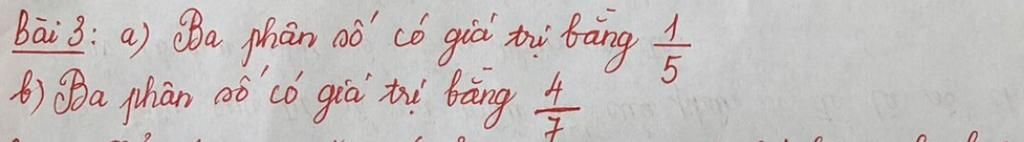 Bài 3: a) Ba phân số có giá trị bằng 1/5
b) Ba phân số có giá trị bằng 4/7